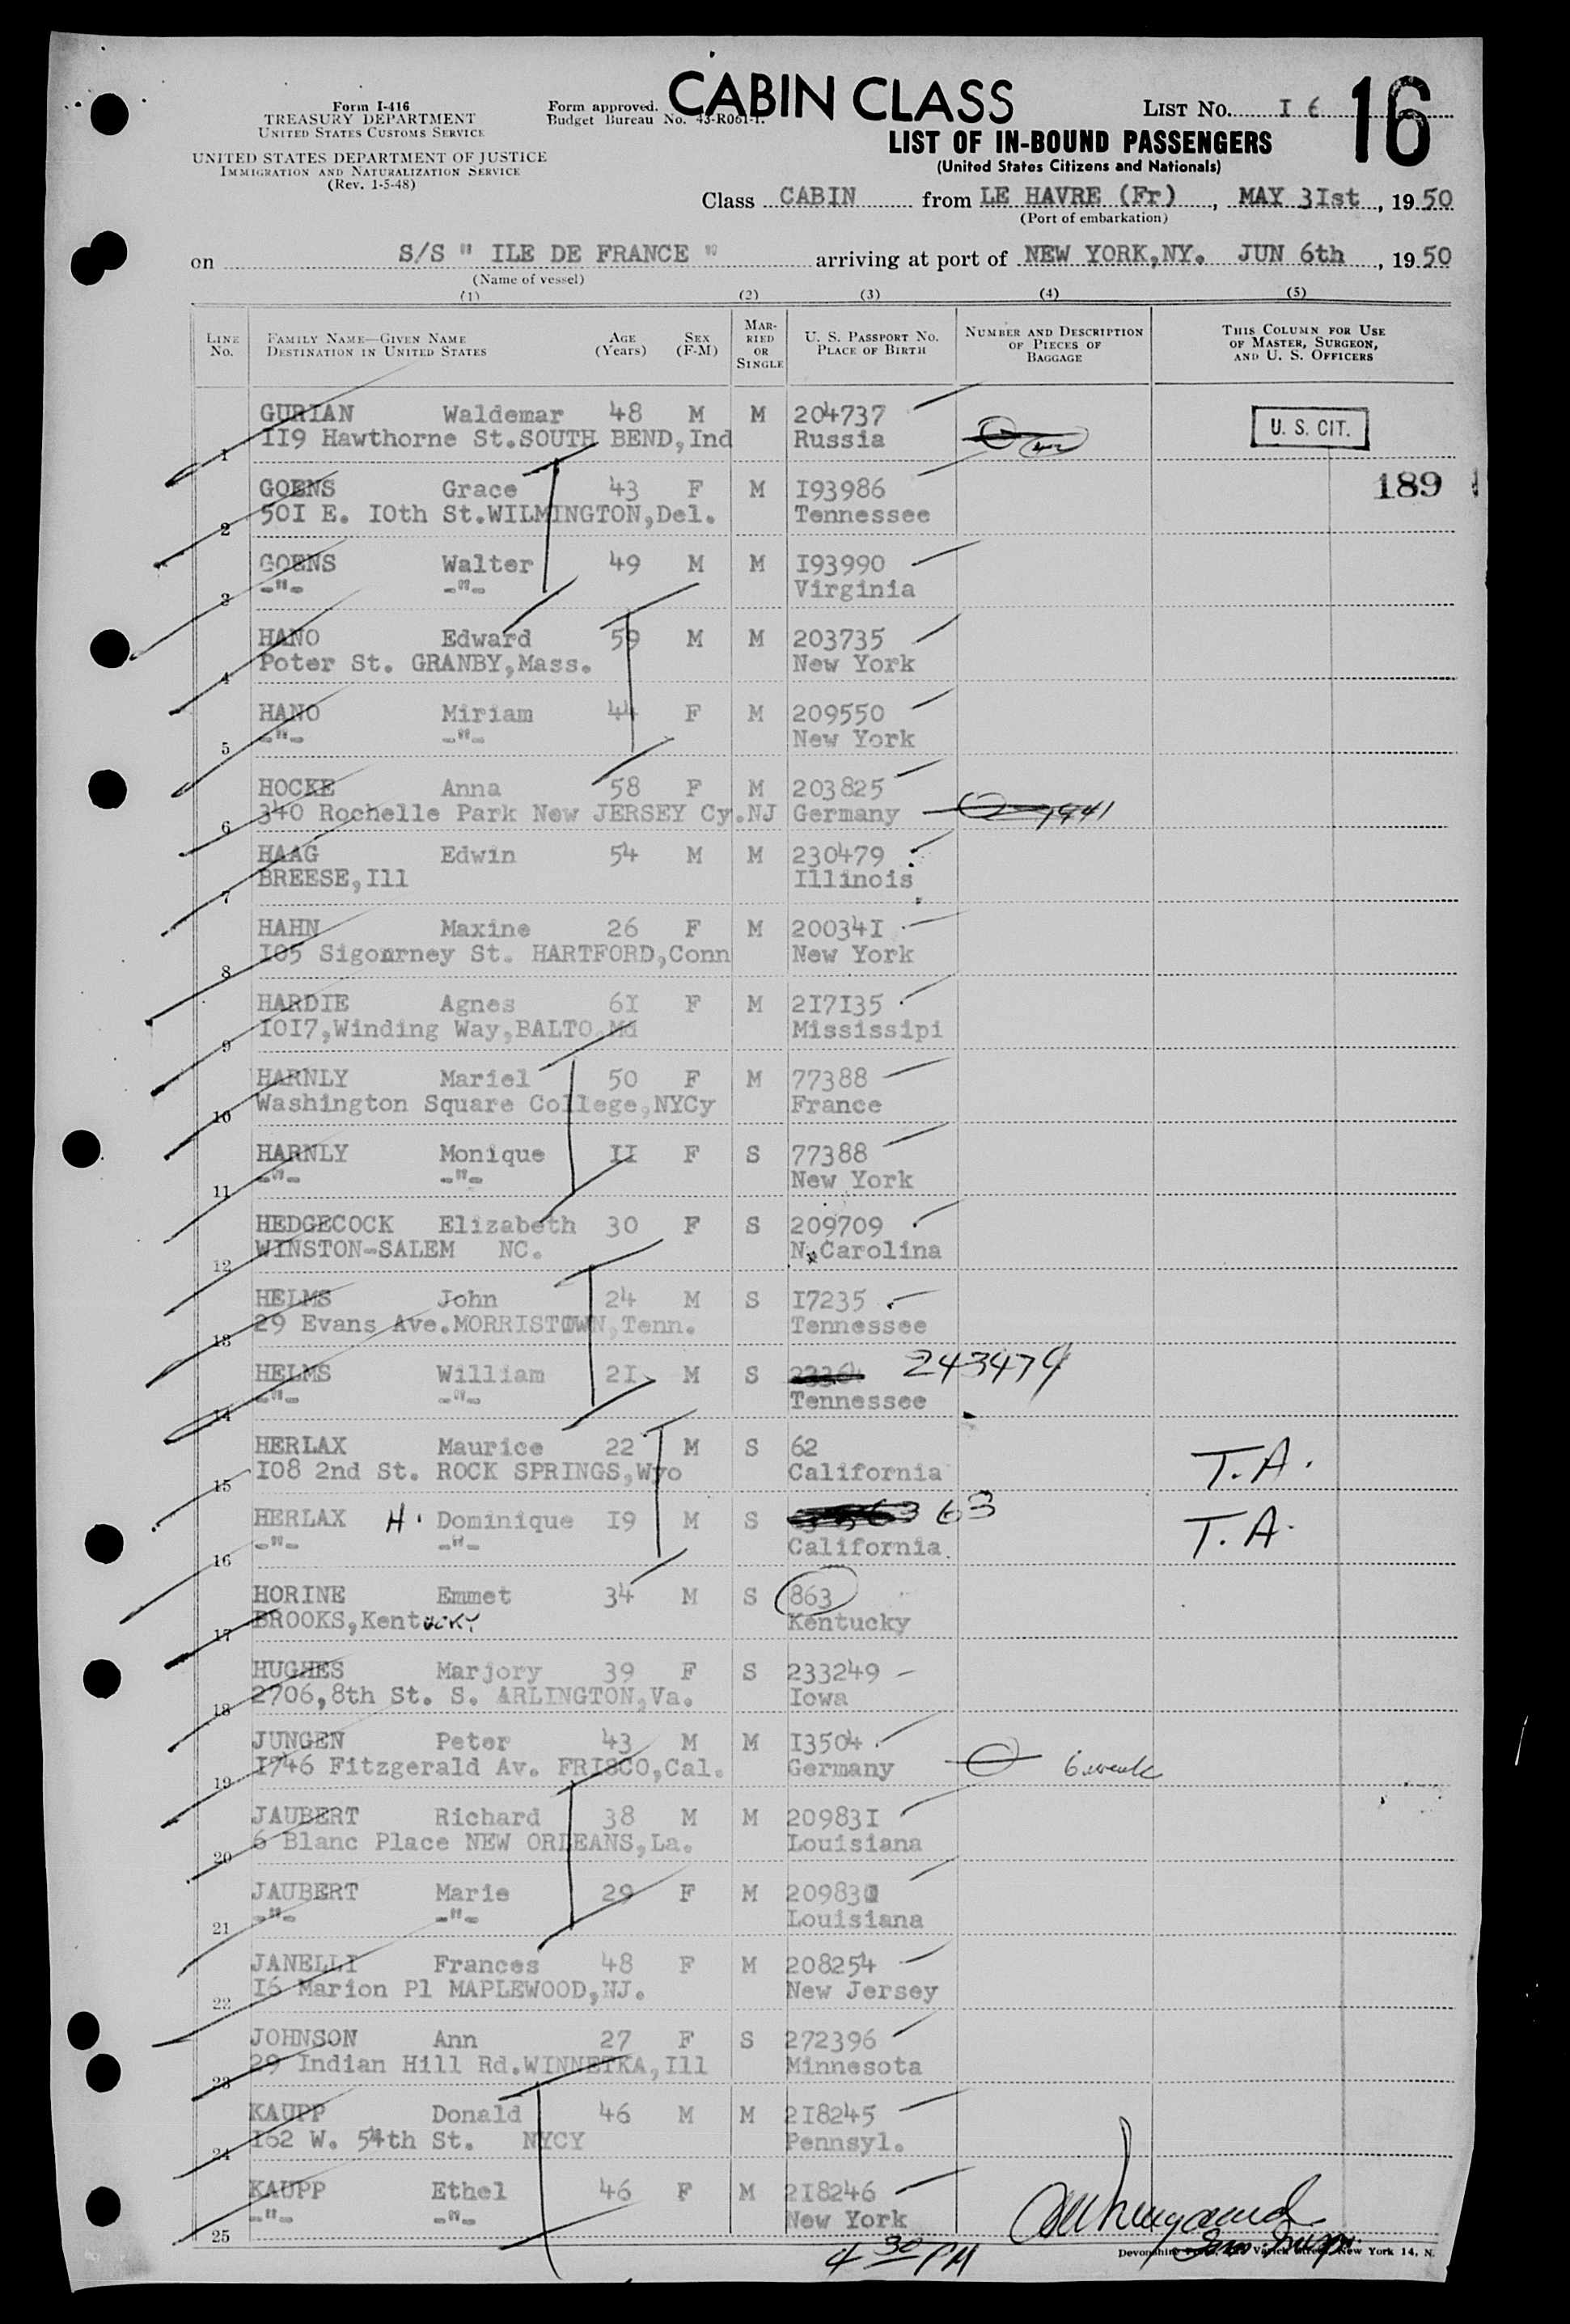 Form I-416
TREASURY DEPARTMENT
UNITED STATES CUSTOMS SERVICE
UNITED STATES DEPARTMENT OF JUSTICE
IMMIGRATION AND NATURALIZATION SERVICE
(Rev. 1-5-48)
Form approved.
Budget Bureau No. 43-R061-1.
CABIN CLASS
LIST NO. I6 16
LIST OF IN-BOUND PASSENGERS
(United States Citizens and Nationals)
Class CABIN from LE HAVRE (Fr), MAY 3Ist, 1950
(Port of embarkation)
on S/S " ILE DE FRANCE " arriving at port of NEW YORK,NY. JUN 6th, 1950
(Name of vessel)
(1) (2) (3) (4) (5)
LINE NO. FAMILY NAME—GIVEN NAME DESTINATION IN UNITED STATES AGE (Years) SEX (F-M) MARRIED OR SINGLE U. S. PASSPORT NO. PLACE OF BIRTH NUMBER AND DESCRIPTION OF PIECES OF BAGGAGE THIS COLUMN FOR USE OF MASTER, SURGEON, AND U. S. OFFICERS
GURIAN Waldemar 48 M M 204737
1 II9 Hawthorne St.SOUTH BEND,Ind Russia U. S. CIT.
GOENS Grace 43 F M I93986 189
2 50I E. IOth St.WILMINGTON,Del. Tennessee
GOENS Walter 49 M M I93990
3 -"- -"- Virginia
HANO Edward 59 M M 203735
4 Poter St. GRANBY,Mass. New York
HANO Miriam 44 F M 209550
5 -"- -"- New York
HOCKE Anna 58 F M 203825
6 340 Rochelle Park New JERSEY Cy.NJ Germany 1941
HAAG Edwin 54 M M 230479
7 BREESE,Ill Illinois
HAHN Maxine 26 F M 20034I
8 I05 Sigourney St. HARTFORD,Conn New York
HARDIE Agnes 6I F M 2I7I35
9 IOI7,Winding Way,BALTO,Md Mississipi
HARNLY Mariel 50 F M 77388
10 Washington Square College,NYCy France
HARNLY Monique II F S 77388
11 -"- -"- New York
HEDGECOCK Elizabeth 30 F S 209709
12 WINSTON-SALEM NC. N.Carolina
HELMS John 24 M S I7235
13 29 Evans Ave.MORRISTOWN,Tenn. Tennessee
HELMS William 2I M S 243479
14 -"- -"- Tennessee
HERLAX Maurice 22 M S 62
15 I08 2nd St. ROCK SPRINGS,Wyo California T.A.
HERLAX H. Dominique I9 M S 63
16 -"- -"- California T.A.
HORINE Emmet 34 M S 863
17 BROOKS,Kentucky Kentucky
HUGHES Marjory 39 F S 233249
18 2706,8th St. S. ARLINGTON,Va. Iowa
JUNGEN Peter 43 M M I3504
19 I746 Fitzgerald Av. FRISCO,Cal. Germany 6 week
JAUBERT Richard 38 M M 20983I
20 6 Blanc Place NEW ORLEANS,La. Louisiana
JAUBERT Marie 29 F M 209830
21 -"- -"- Louisiana
JANELLI Frances 48 F M 208254
22 I6 Marion Pl MAPLEWOOD,NJ. New Jersey
JOHNSON Ann 27 F S 272396
23 29 Indian Hill Rd.WINNETKA,Ill Minnesota
KAUPP Donald 46 M M 2I8245
24 I62 W. 54th St. NYCY Pennsyl.
KAUPP Ethel 46 F M 2I8246
25 -"- -"- New York
4 30 PM
New York 14, N.